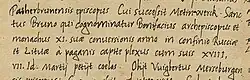 Patherbrunensis episcopus Cui successit Metinwerck. Sanc
tus Bruno qui cognominatur Bonifacius archiepiscopus et
monachus XI. suae conversionis anno in confinio Rusciae
et Lituae à paganis capite plexus cum suis XVIII,
VII. Id. Martij petijt coelos. Obijt Vuigbertus Merseburgen